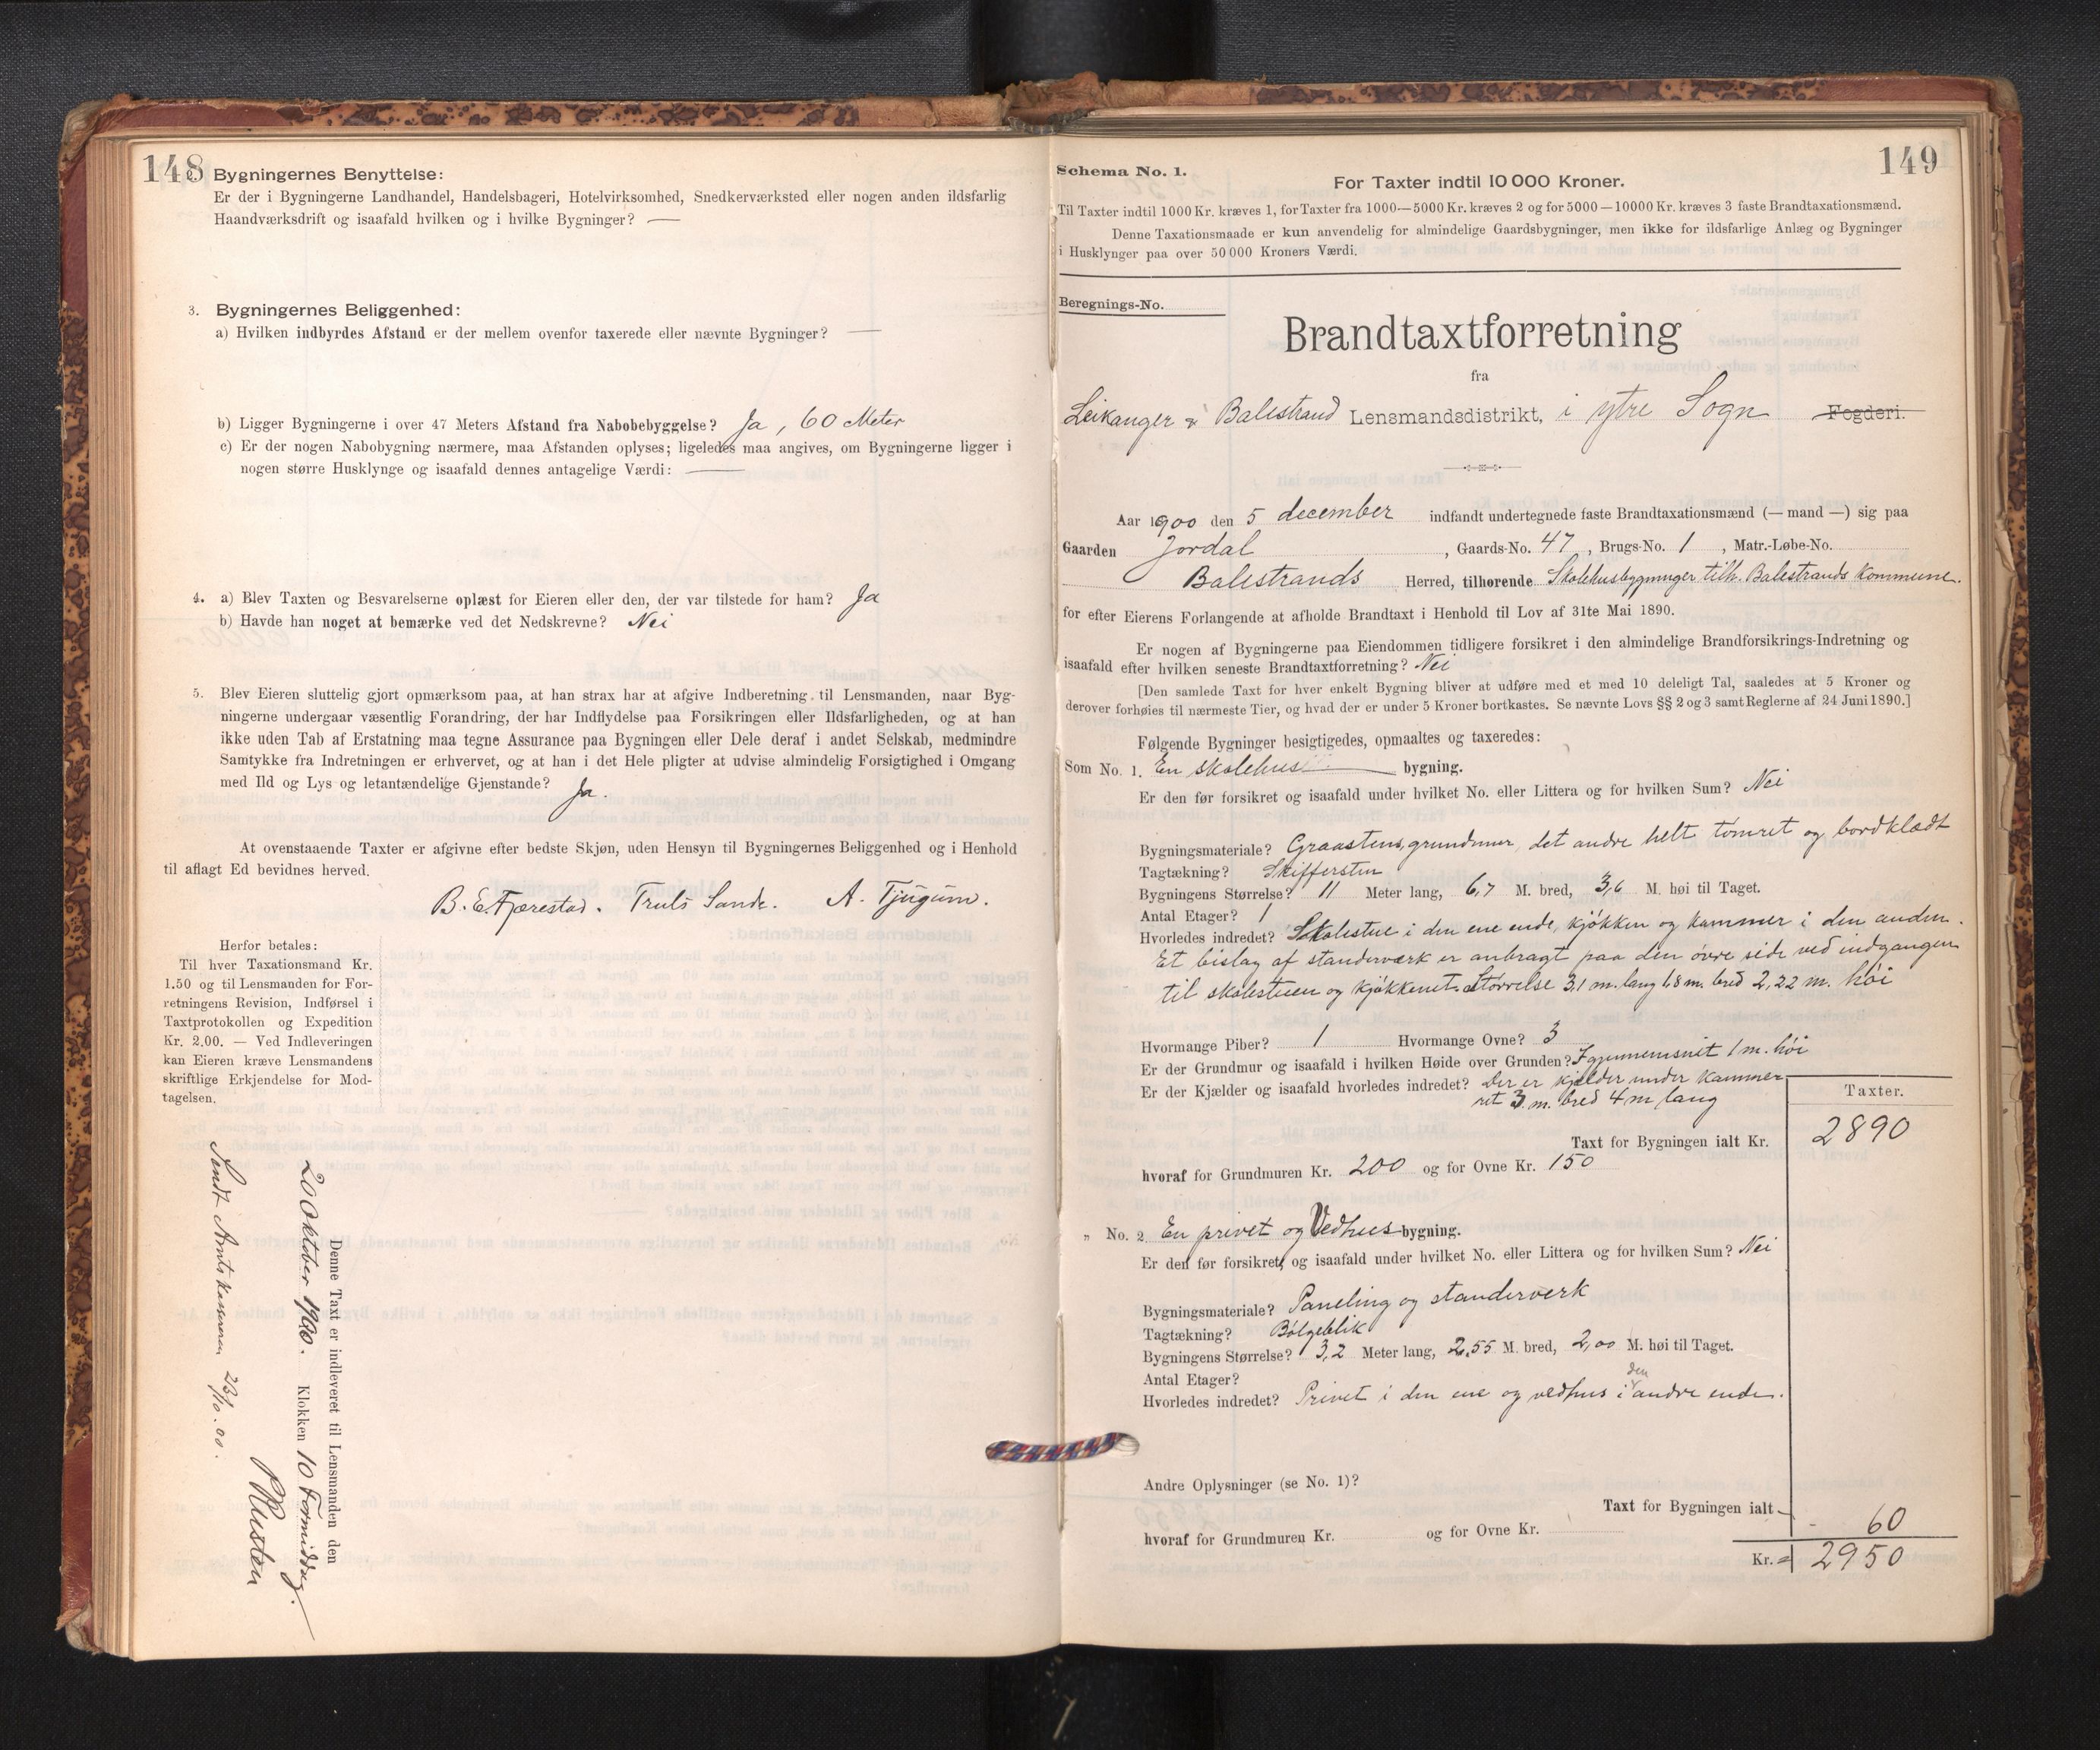 148
Bygningernes Benyttelse:
Er der i Bygningerne Landhandel, Handelsbageri, Hotelvirksomhed, Snedkerværksted eller nogen anden ildsfarlig
Haandværksdrift og isaafald hvilken og i hvilke Bygninger? —
3. Bygningernes Beliggenhed:
a) Hvilken indbyrdes Afstand er der mellem ovenfor taxerede eller nævnte Bygninger? —
b) Ligger Bygningerne i over 47 Meters Afstand fra Nabobebyggelse? Ja, 60 Meter
c) Er der nogen Nabobygning nærmere, maa Afstanden oplyses; ligeledes maa angives, om Bygningerne ligger i
nogen større Husklynge og isaafald dennes antagelige Værdi: —
4. a) Blev Taxten og Besvarelserne oplæst for Eieren eller den, der var tilstede for ham? Ja
b) Havde han noget at bemærke ved det Nedskrevne? Nei
5. Blev Eieren sluttelig gjort opmærksom paa, at han strax har at afgive Indberetning til Lensmanden, naar Byg-
ningerne undergaar væsentlig Forandring, der har Indflydelse paa Forsikringen eller Ildsfarligheden, og at han
ikke uden Tab af Erstatning maa tegne Assurance paa Bygningen eller Dele deraf i andet Selskab, medmindre
Samtykke fra Indretningen er erhvervet, og at han i det Hele pligter at udvise almindelig Forsigtighed i Omgang
med Ild og Lys og letantændelige Gjenstande? Ja.
At ovenstaaende Taxter er afgivne efter bedste Skjøn, uden Hensyn til Bygningernes Beliggenhed og i Henhold
til aflagt Ed bevidnes herved.
B. E. Fjærestad. Truls Sande. A. Tjugum.
Herfor betales:
Til hver Taxationsmand Kr.
1.50 og til Lensmanden for For-
retningens Revision, Indførsel i
Taxtprotokollen og Expedition
Kr. 2.00. — Ved Indleveringen
kan Eieren kræve Lensmandens
skriftlige Erkjendelse for Mod-
tagelsen.
Denne Taxt er indleveret til Lensmanden den
20 Oktober 1900. Klokken 10 Formiddag.
Sendt Amtskassereren 23/10.00.
149
Schema No. 1.
For Taxter indtil 10 000 Kroner.
Til Taxter indtil 1000 Kr. kræves 1, for Taxter fra 1000—5000 Kr. kræves 2 og for 5000—10000 Kr. kræves 3 faste Brandtaxationsmænd.
Denne Taxationsmaade er kun anvendelig for almindelige Gaardsbygninger, men ikke for ildsfarlige Anlæg og Bygninger
i Husklynger paa over 50 000 Kroners Værdi.
Beregnings-No.
Brandtaxtforretning
fra
Leikanger & Balestrand Lensmandsdistrikt, i ytre Sogn Fogderi.
Aar 1900 den 5 december indfandt undertegnede faste Brandtaxationsmænd (— mand —) sig paa
Gaarden Jordal, Gaards-No. 47, Brugs-No. 1, Matr.-Løbe-No.
Balestrands Herred, tilhørende Skolehusbygninger tilh. Balestrands Kommune.
for efter Eierens Forlangende at afholde Brandtaxt i Henhold til Lov af 31te Mai 1890.
Er nogen af Bygningerne paa Eiendommen tidligere forsikret i den almindelige Brandforsikrings-Indretning og
isaafald efter hvilken seneste Brandtaxtforretning? Nei
[Den samlede Taxt for hver enkelt Bygning bliver at udføre med et med 10 deleligt Tal, saaledes at 5 Kroner og
derover forhøies til nærmeste Tier, og hvad der er under 5 Kroner bortkastes. Se nævnte Lovs §§ 2 og 3 samt Reglerne af 24 Juni 1890.]
Følgende Bygninger besigtigedes, opmaaltes og taxeredes:
Som No. 1. En skolehus— bygning.
Er den før forsikret og isaafald under hvilket No. eller Littera og for hvilken Sum? Nei
Bygningsmateriale? Graastens grundmur, det andre helt tømret og bordklædt
Tagtækning? Skiffersten
Bygningens Størrelse? 11 Meter lang, 6,7 M. bred, 3,6 M. høi til Taget.
Antal Etager? 1
Hvorledes indredet? Skolestue i den ene ende, kjøkken og kammer i den anden.
Et bislag af standerværk er anbragt paa den øvre side ved indgangen
til skolestuen og kjøkkenet. Størrelse 3,1 m. lang 1,8 m. bred 2,22 m. høi
Hvormange Piber? 1 Hvormange Ovne? 3
Er der Grundmur og isaafald i hvilken Høide over Grunden? I gjennemsnit 1 m. høi
Er der Kjælder og isaafald hvorledes indredet? Der er kjælder under kammer
ret 3 m. bred 4 m lang
Taxter.
Taxt for Bygningen ialt Kr. 2890
hvoraf for Grundmuren Kr. 200 og for Ovne Kr. 150
„ No. 2 En privet og Vedhus bygning.
Er den før forsikret, og isaafald under hvilket No. eller Littera og for hvilken Sum? Nei
Bygningsmateriale? Paneling og standerverk
Tagtækning? Bølgeblik
Bygningens Størrelse? 3,2 Meter lang, 2,55 M. bred, 2,00 M. høi til Taget.
Antal Etager?
Hvorledes indredet? Privet i den ene og vedhus i den andre ende.
Andre Oplysninger (se No. 1)?
Taxt for Bygningen ialt - 60
hvoraf for Grundmuren Kr. og for Ovne Kr.
Kr. = 2950